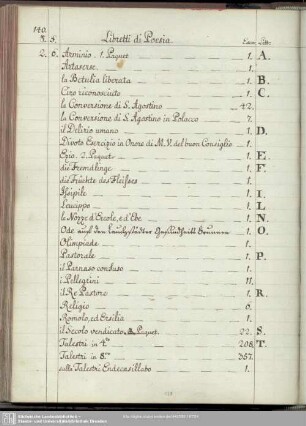 140.
N. S. Libretti di Poesia. Exem: Litt:
2. 6. Arminio. 1. Paquet 1. A.
Artaserse. 1.
la Betulia liberata 1. B.
Ciro riconosciuto 1. C.
la Conversione di S. Agostino 42.
la Conversione di S. Agostino in Polacco 7.
il Delirio umano 1. D.
Divoto Esercizio in Onore di M. V. del buon Consiglio 1.
Ezio. 2. Paquets 1. E.
die Fremdlinge 1. F.
die Früchte des Fleißes 1.
Ifsipile 1. I.
Leucippo 1. L.
le Nozze d'Ercole, e d'Ebe 1. N.
Ode auf den 1. O.
Olimpiade 1.
Pastorale 1. P.
il Parnaso confuso 1.
i Pellegrini 11.
il Re Pastore 1. R.
Religio 6.
Romolo, ed Ersilia 1.
il Secolo vendicato, Paquet. 22. S.
Talestri in 4to 208. T.
Talestri in 8vo 357.
sulla Talestri Endecasillabo 1.